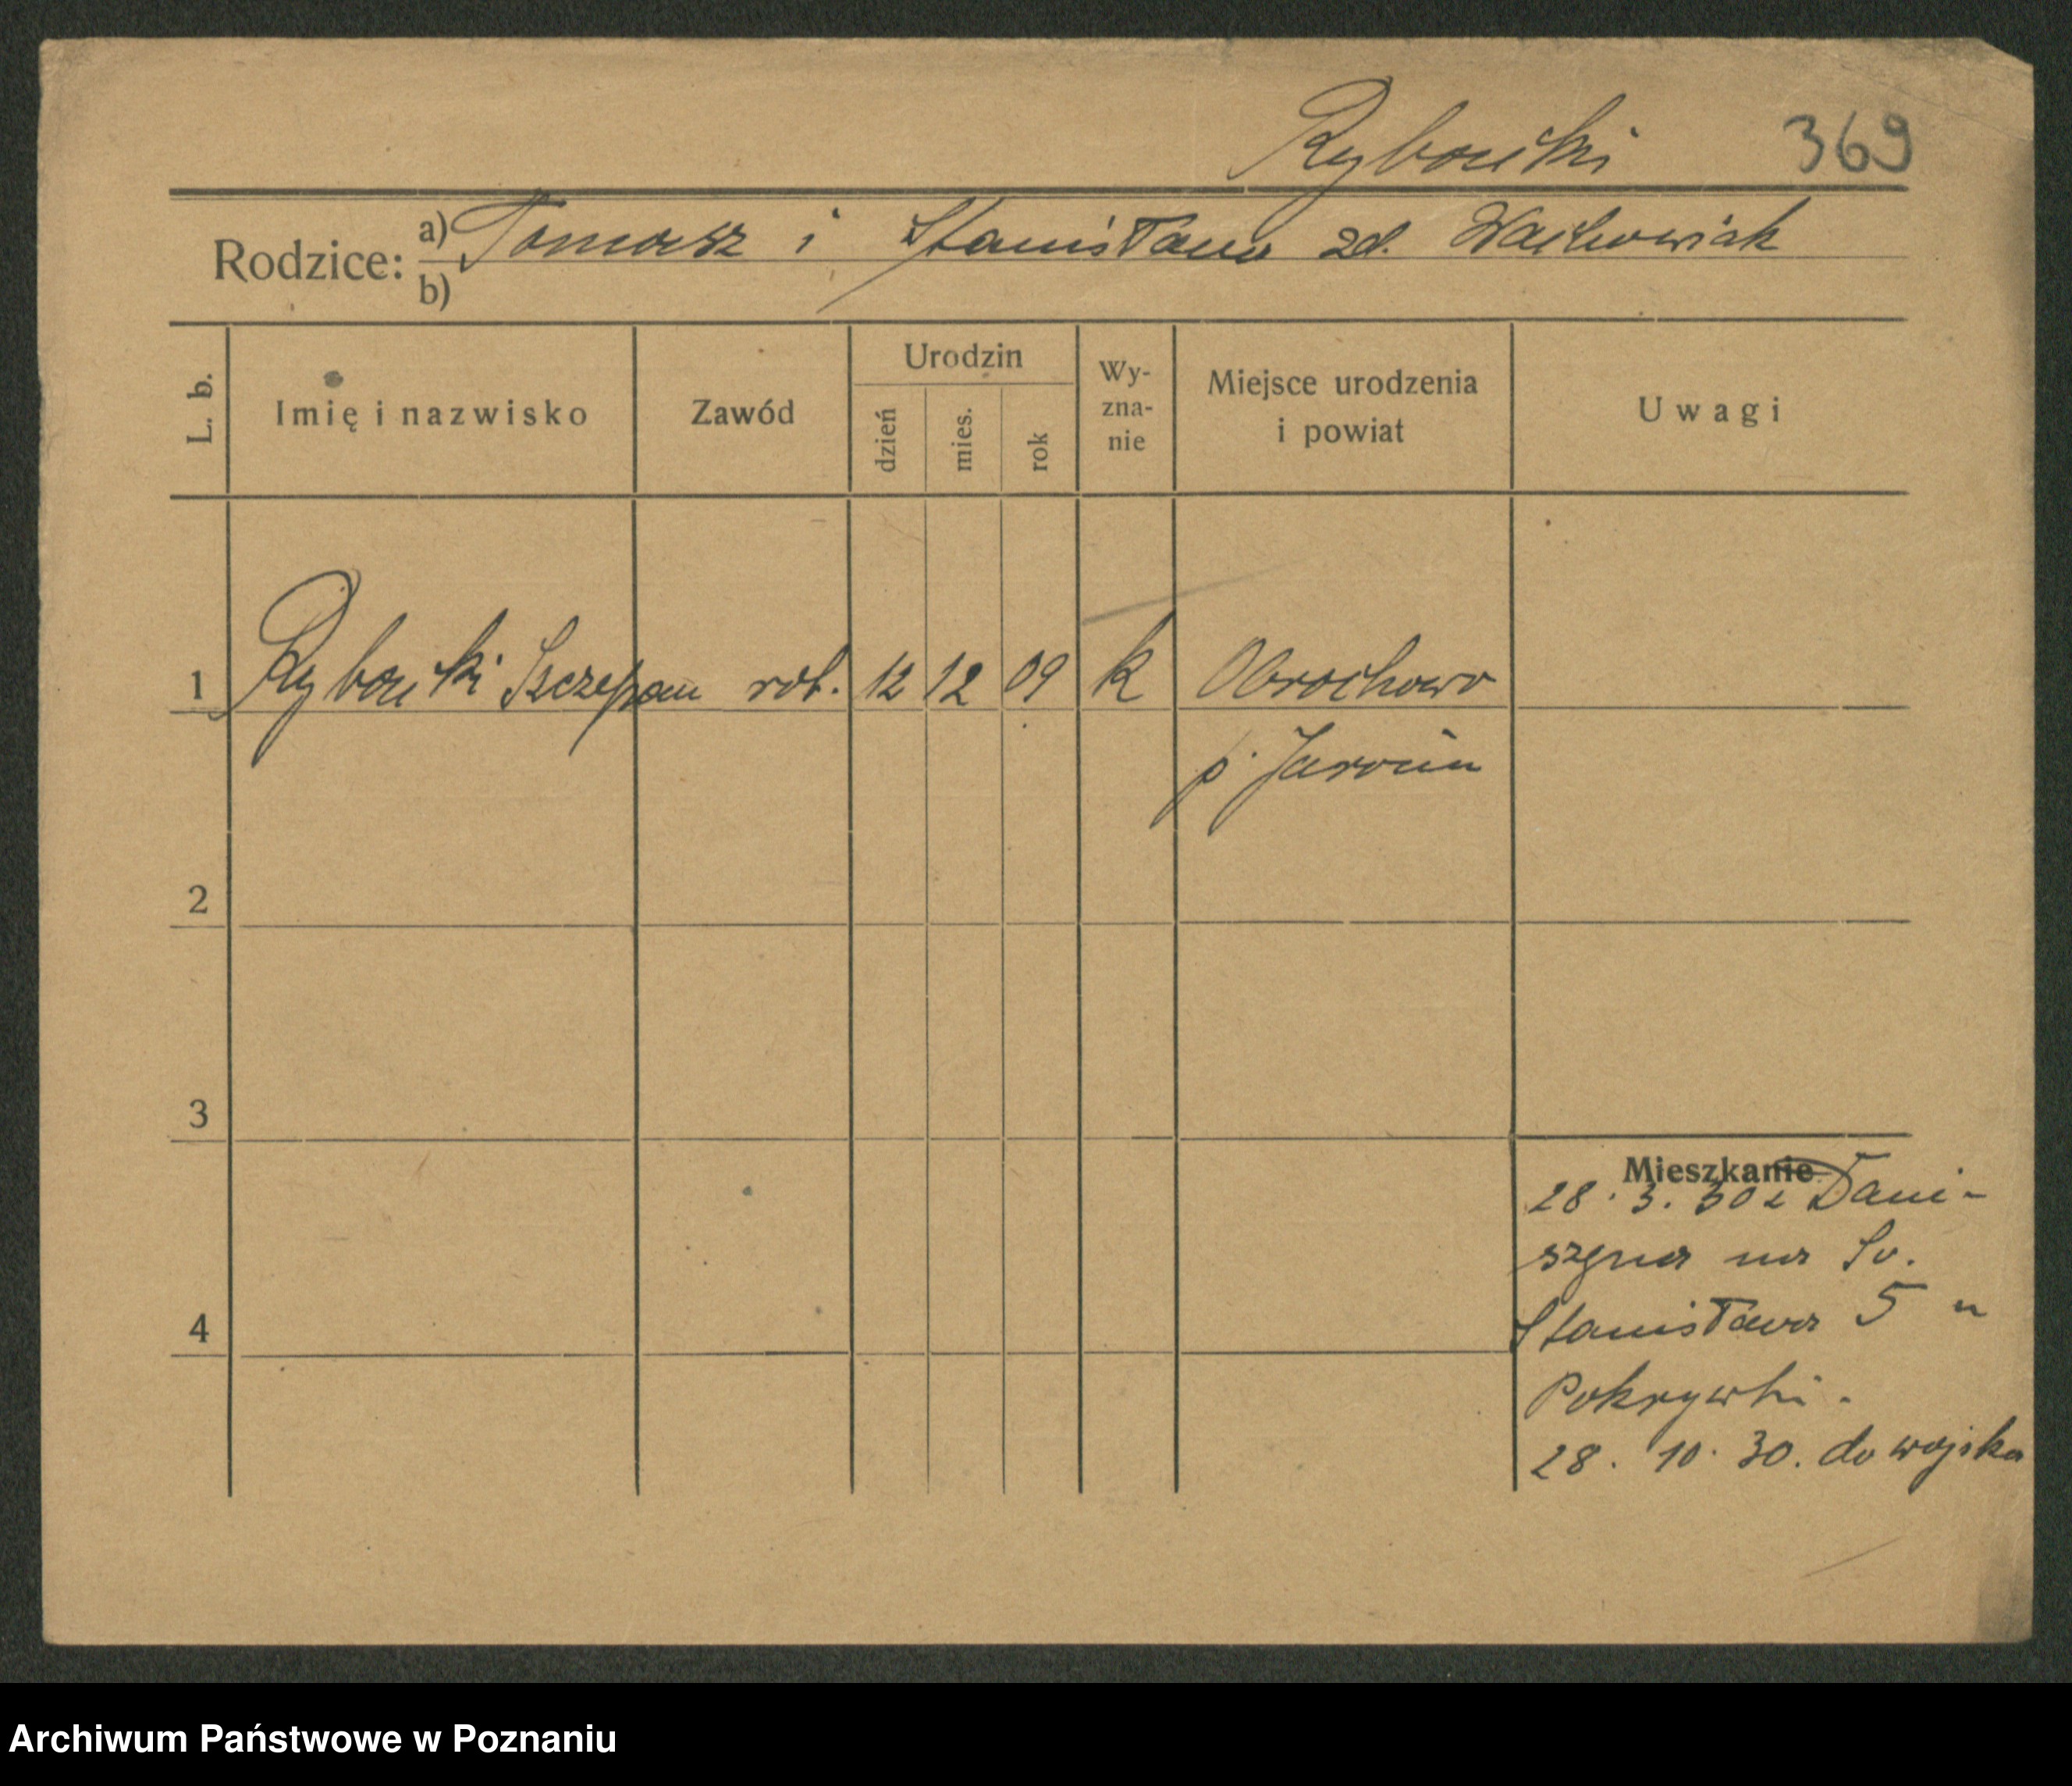 Rybowski 369
Rodzice: a) Tomasz i Stanisława zd. Wachowiak
b)
L. b. Imię i nazwisko Zawód Urodzin dzień mies. rok Wy-zna-nie Miejsce urodzenia i powiat Uwagi
1 Szczepan rob. 12 12 09 k
p. Jarocin
2
3
Mieszkanie
28. 3. 30 z Dani-
szyna na Św.
4 Stanisława 5 u
Pokrywki.
28. 10. 30. do wojska
Archiwum Państwowe w Poznaniu